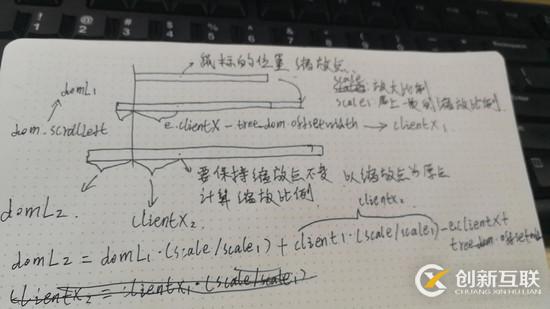 鼠标的位置 缩放点
domL1
scale: 放大比例
scale1: 屏上一次的缩放比例
dom.scrollLeft
e.clientX - tree_dom.offsetwidth → clientX1
要保持缩放点不变 以缩放点为原点
计算缩放比例
clientX2
domL2
clientX2
domL2 = domL1·(scale/scale1) + client1·(scale/scale1) - e.clientX +
tree_dom.offsetwidth
clientX2 = clientX1·(scale/scale1)
创新互联